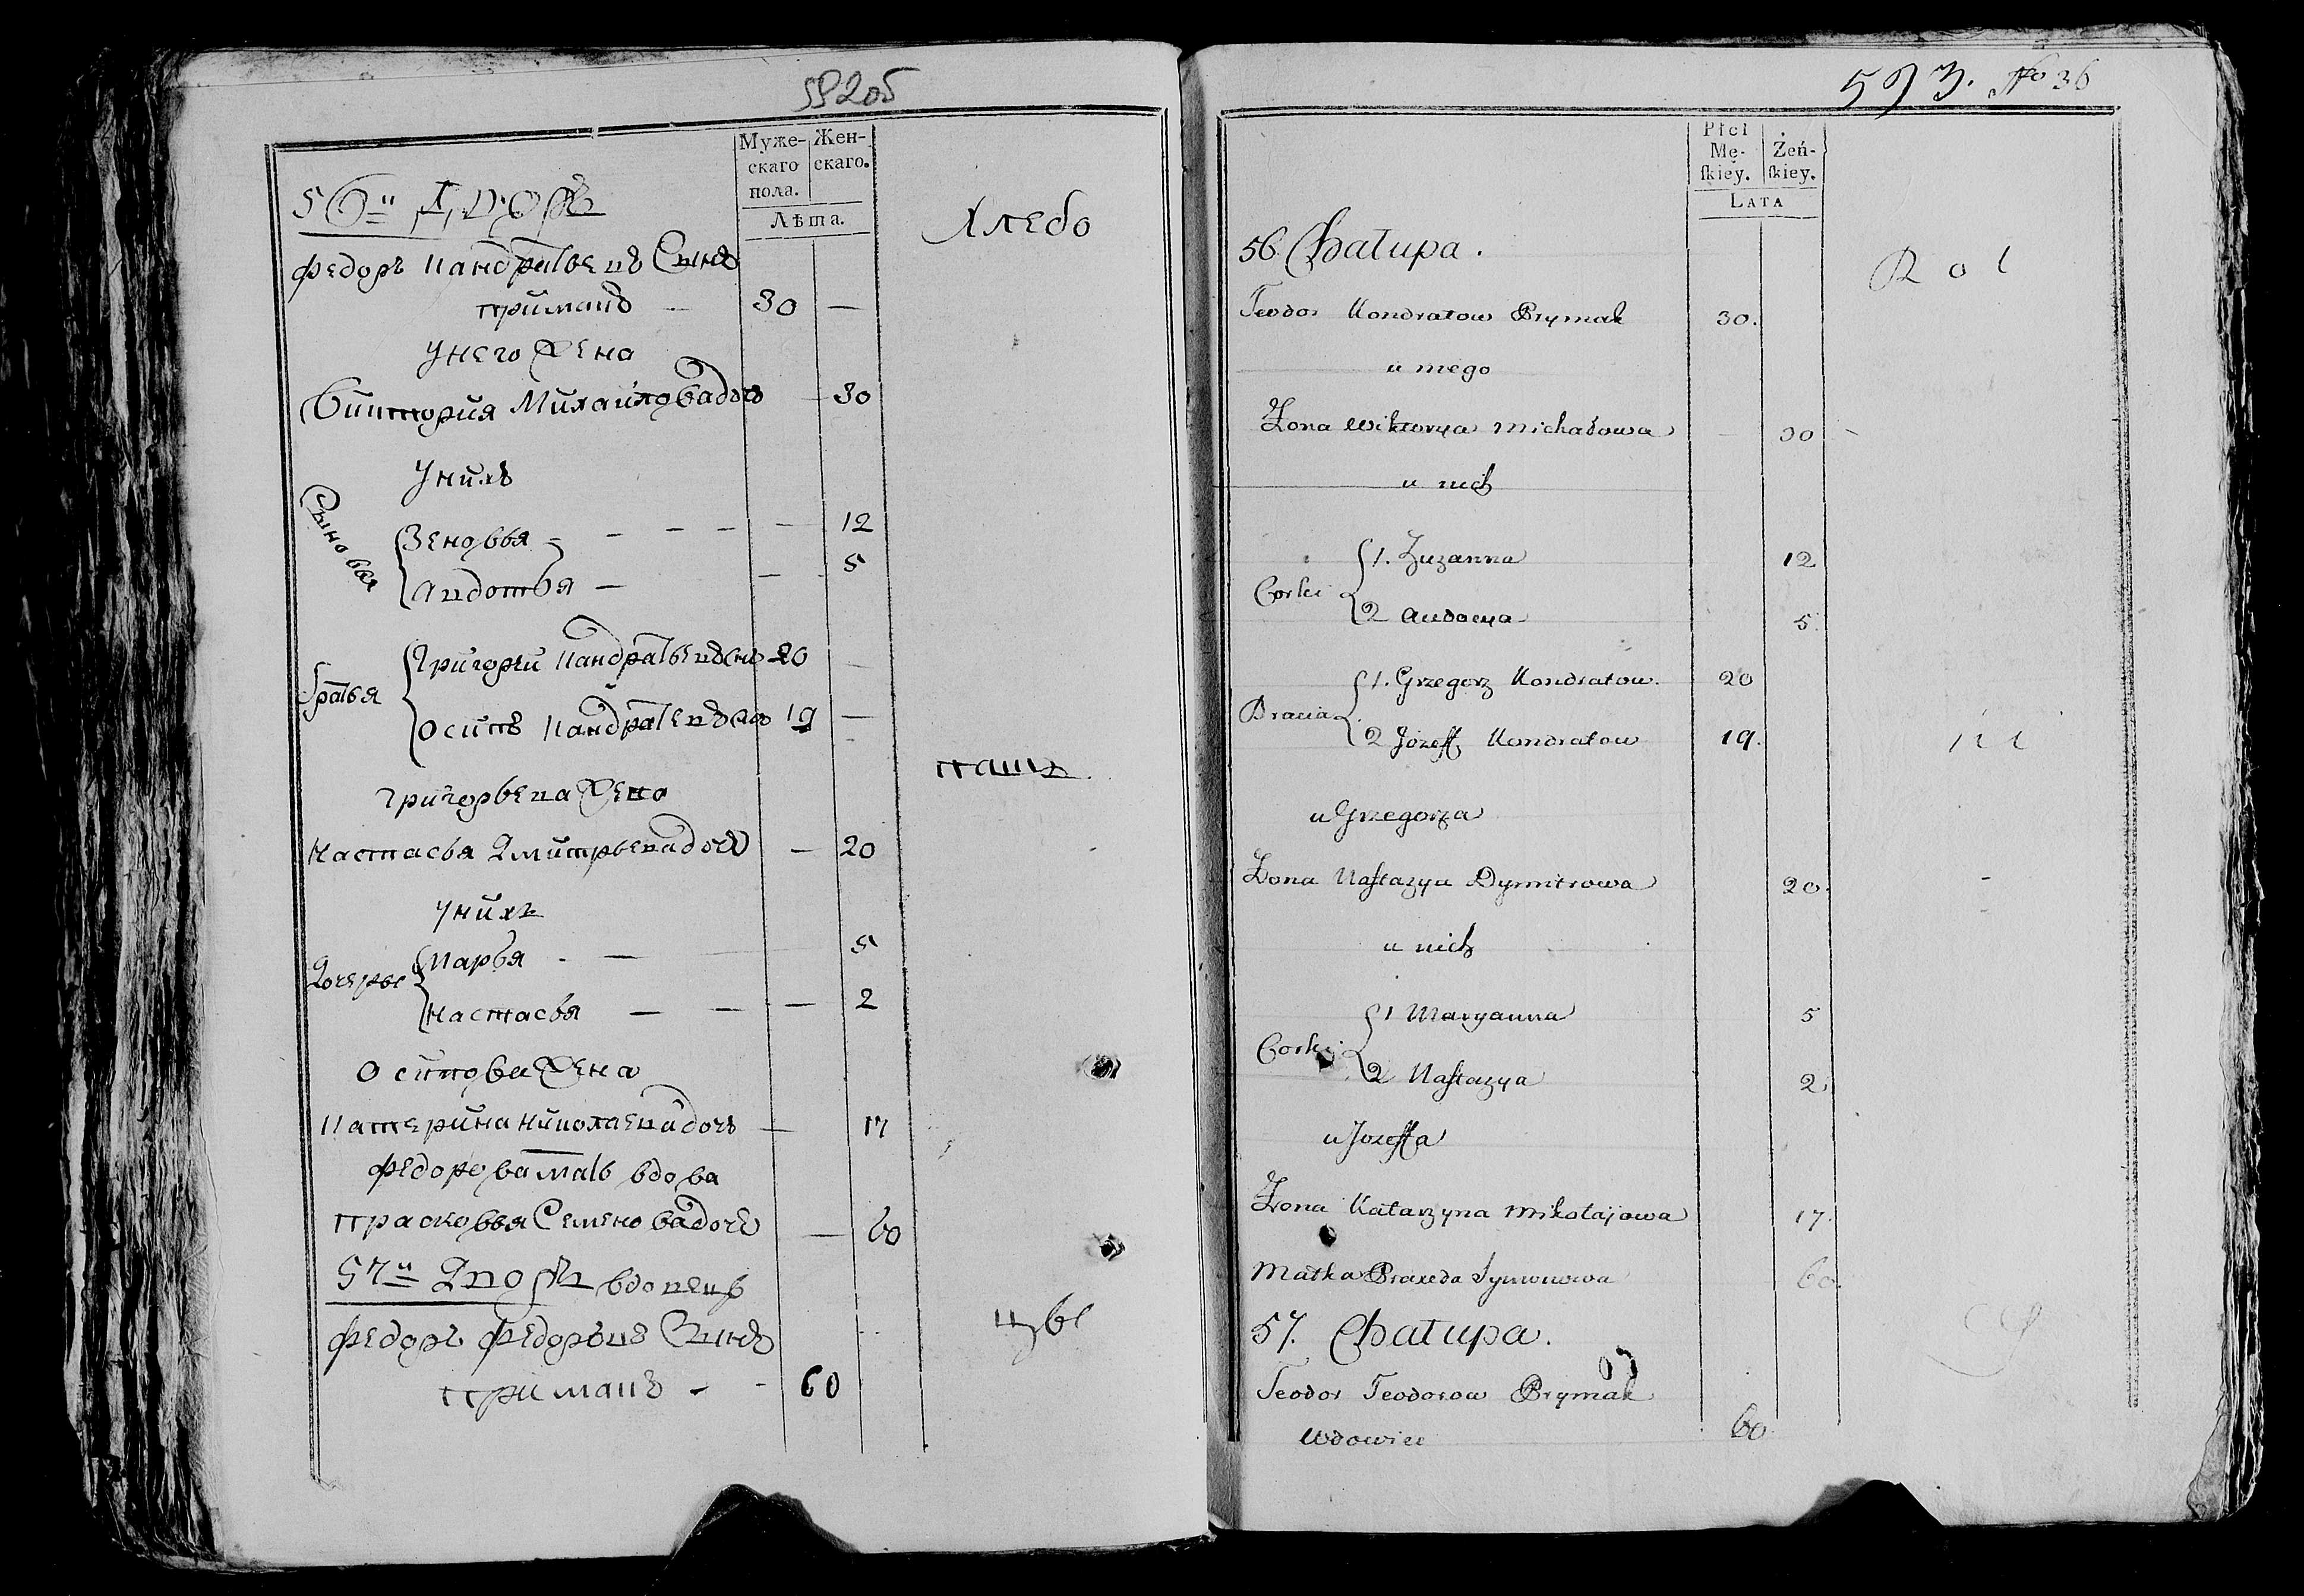 205
Муже-
скаго
пола.
Жен-
скаго.
Лѣта.
56й Дворъ
Хлебо
Федоръ Кандратьевъ Сынъ
примакъ — 30 —
У него жена
Виктория Михайлова дочь — 30
У нихъ
Сыновья
Зеновья — — — — 12
Авдотья — — 5
братья
Григорей Кандратьевъ Снъ 20 —
Осипъ Кандратьевъ Снъ 19 —
паш
Григорьева жена
Настасья Дмитрьева дочь — 20
У нихъ
Дочерье
Марья - — 5
Настасья — — — 2
Осипова жена
Катерина Николаева дочь — 17
Федорова мать вдова
Прасковья Семенова дочь — 60
57й Дворъ вдовецъ
цы
Федоръ Федоровъ Сынъ
примакъ - - 60
593. No 36
Płci
Mę-
ſkiey.
Żeń-
ſkiey.
LATA
56. Chałupa.
Rol
Teodor Kondratow Prymak 30.
u niego
Żona Wiktorya Michałowa — 30
u nich
Corki
1. Zuzanna 12
2 Audocya 5.
Bracia
1. Grzegorz Kondratow. 20
2 Jozeff Kondratow 19.
ni
u Grzegorza
Żona Naſtazya Dymitrowa 20.
u nich
Corki
1 Maryanna 5
2 Naſtazya 2.
u Jozeffa
Żona Katarzyna Mikołajowa 17.
Matka Praxeda Symonowa 60.
57. Chałupa.
Teodor Teodorow Prymak
Wdowiec 60